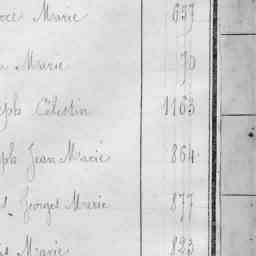 Marie 637
Marie 70
ph Célestin 1163
ph Jean Marie 864
Georges Marie 877
Marie 823